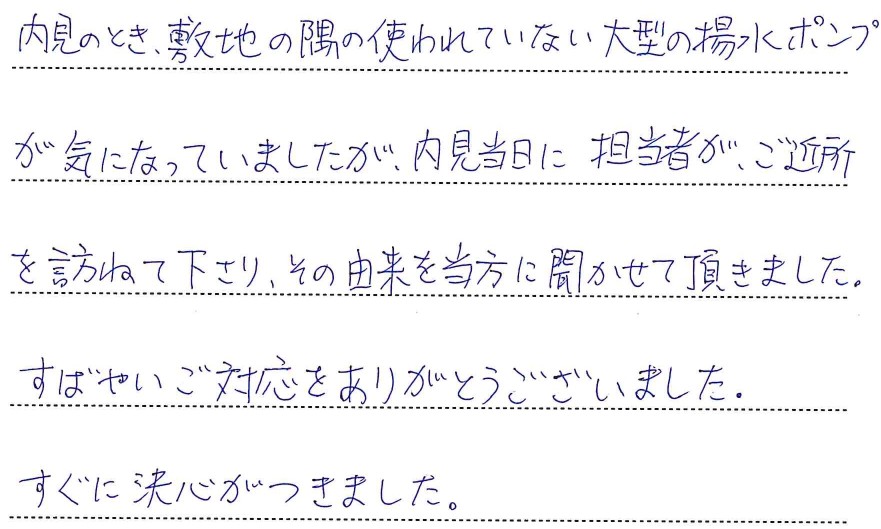 内見のとき、敷地の隅の使われていない大型の揚水ポンプ
が気になっていましたが、内見当日に担当者が、ご近所
を訪ねて下さり、その由来を当方に聞かせて頂きました。
すばやいご対応をありがとうございました。
すぐに決心がつきました。